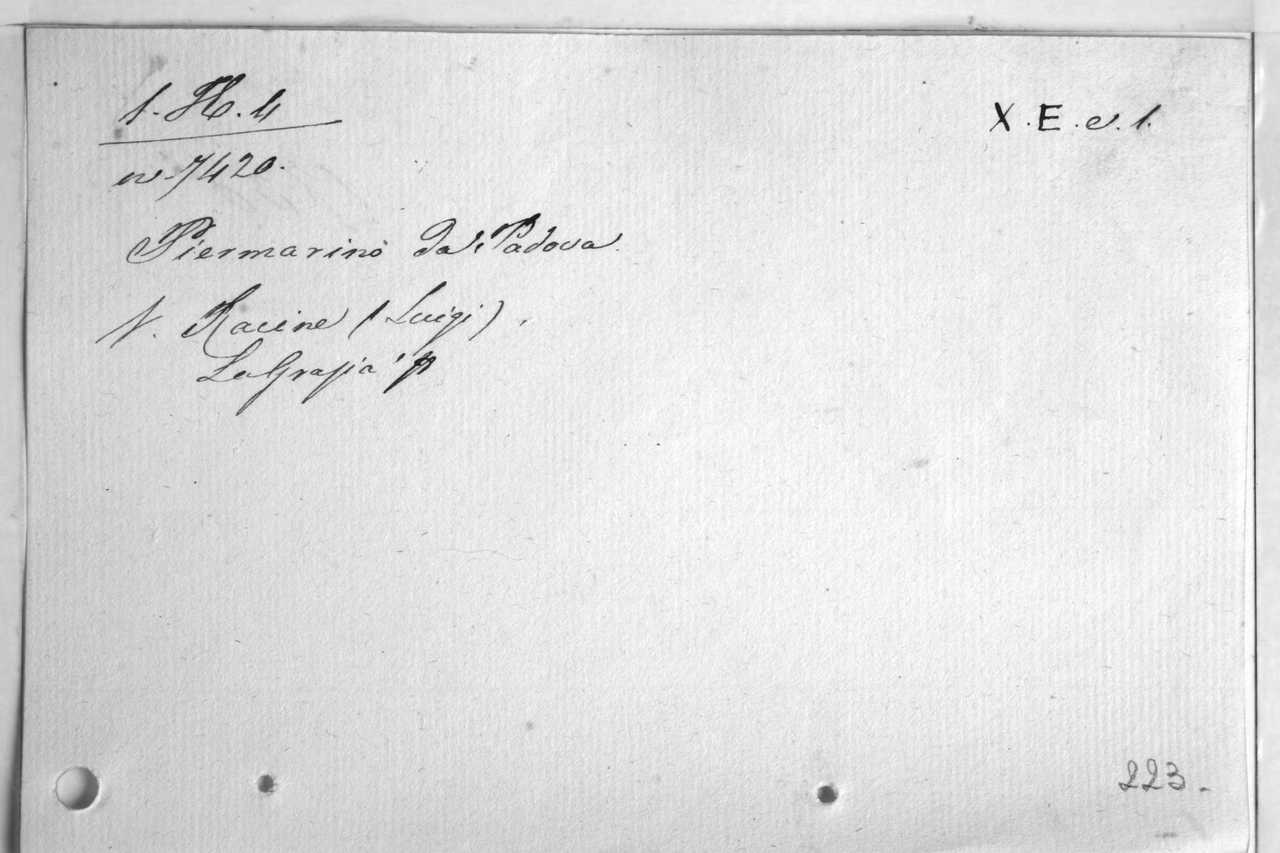 1. H. 4
X. E. e. 1.
n. 7420.
Piermarino da Padova.
V. Racine (Luigi).
La Grazia
223.